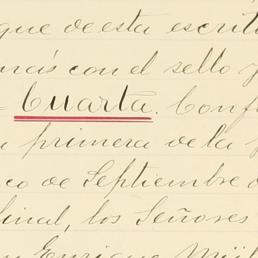 que de esta escrit
más con el sello y
Cuarta. Conf
primera de la
co de Septiembre d
final, los Señores
Enrique Mül